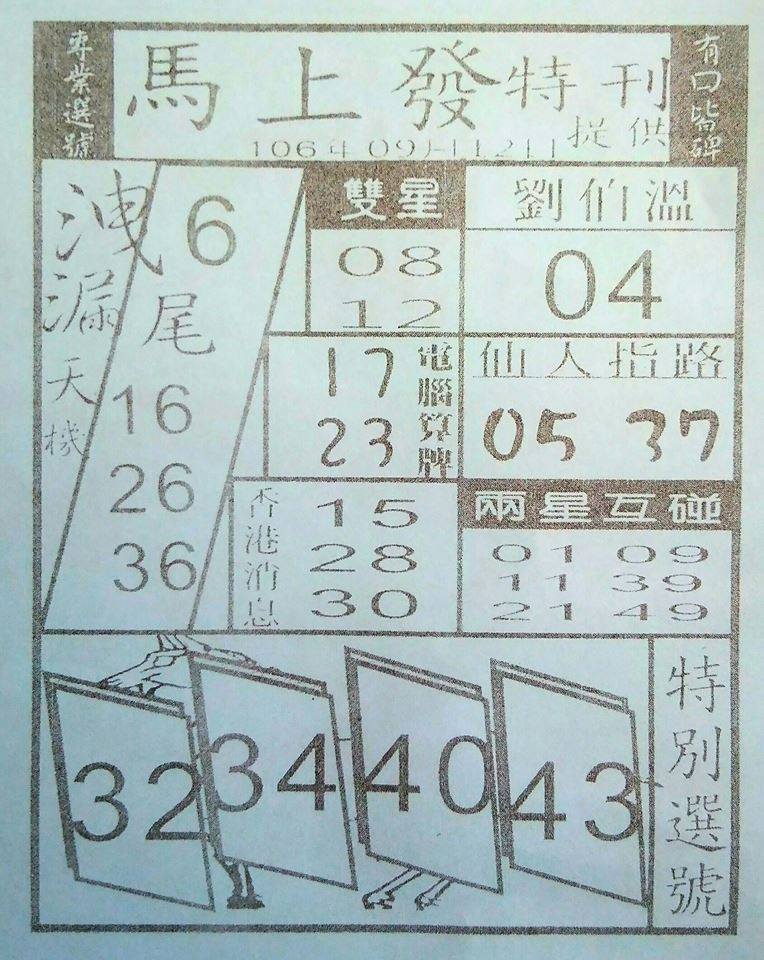 專業選號
馬上發特刊
提供
106年09月12日
有口皆碑
洩漏天機
6
尾
16
26
36
雙星
08
12
劉伯溫
04
電腦算牌
17
23
仙人指路
05 37
香港消息
15
28
30
兩星互碰
01 09
11 39
21 49
32 34 40 43
特別選號